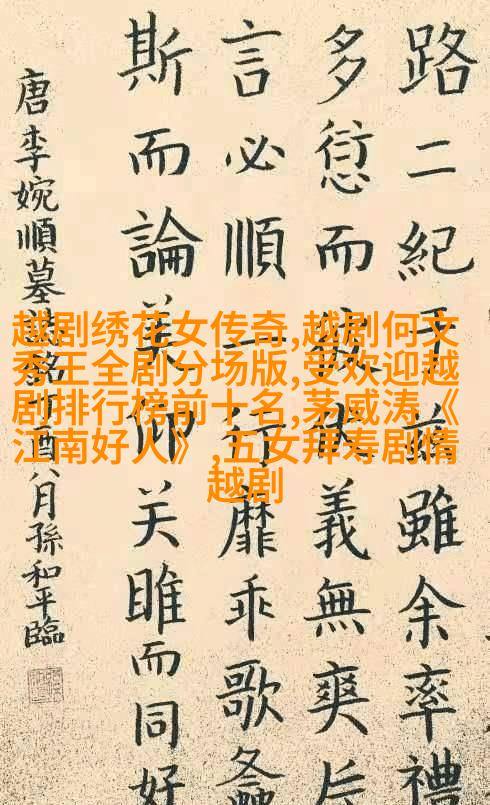 路二紀于雖余率禮
多愆而義無爽
言必順行靡乖歌螽
斯而論美仰关雎而同好
唐李婉順墓誌銘丁酉八月孫和平臨
越剧绣花女传奇,越剧何文
秀王全剧分场版,受欢迎越
剧排行榜前十名,茅威涛《
江南好人》,五女拜寿剧情
越剧